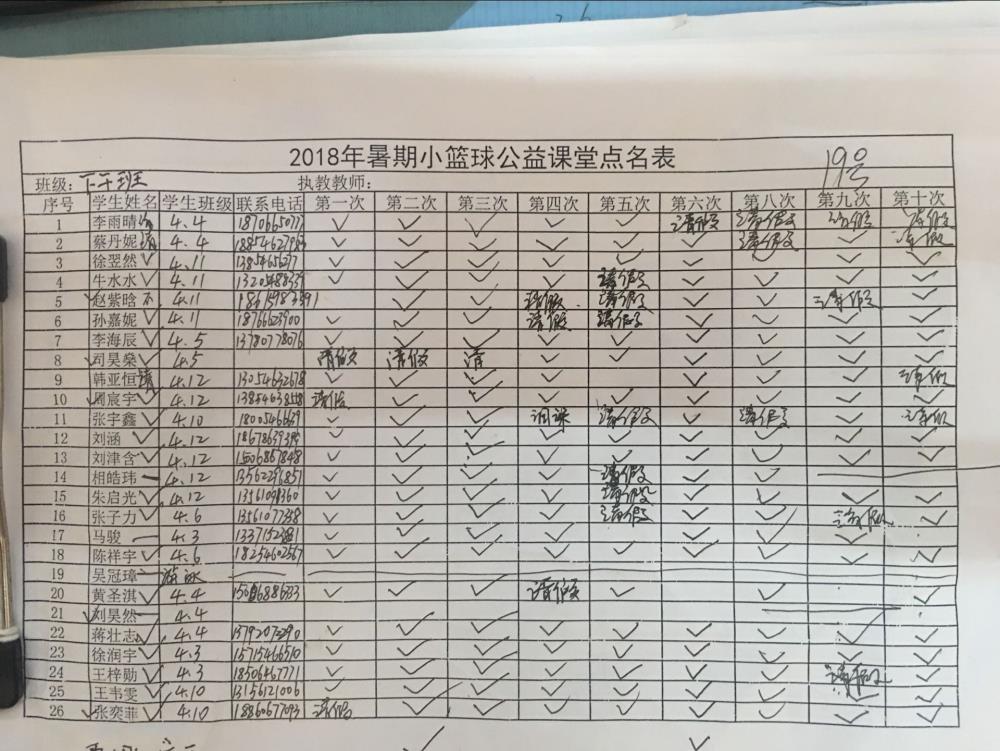 2018年暑期小篮球公益课堂点名表
19号
班级: 下午班 执教教师:
序号 学生姓名 学生班级 联系电话 第一次 第二次 第三次 第四次 第五次 第六次 第七次 第八次 第九次 第十次
1 李雨晴 4.4 ✓ ✓ ✓ ✓ ✓ 请假 请假 请假 请假
2 蔡丹妮 4.4 ✓ ✓ ✓ ✓ ✓ ✓ 请假 ✓ 请假
3 徐翌然 ✓ 4.11 ✓ ✓ ✓ ✓ ✓ ✓ ✓ ✓ ✓
4 牛水水 ✓ 4.11 ✓ ✓ ✓ ✓ 请假 ✓ ✓ ✓ ✓
5 赵紫晗 4.11 ✓ ✓ 请假 请假 ✓ ✓ 请假 ✓
6 孙嘉妮 ✓ 4.11 18766623900 ✓ ✓ ✓ 请假 请假 ✓ ✓ ✓ ✓
7 李海辰 ✓ 4.5 13780778076 ✓ ✓ ✓ ✓ ✓ ✓ ✓ ✓ ✓
8 司昊燊 ✓ 4.5 请假 请假 请 ✓ ✓ ✓ ✓ ✓ ✓
9 韩亚恒 4.12 13054632678 ✓ ✓ ✓ ✓ ✓ ✓ ✓ ✓ 请假
10 周宸宇 ✓ 4.12 请假 ✓ ✓ ✓ ✓ ✓ ✓ ✓ ✓
11 张宇鑫 ✓ 4.10 18005466639 ✓ ✓ ✓ 请假 ✓ 请假 ✓ 请假
12 刘涵 ✓ 4.12 ✓ ✓ ✓ ✓ ✓ ✓ ✓ ✓ ✓
13 刘津含 ✓ 4.12 15006857848 ✓ ✓ ✓ ✓ ✓ ✓ ✓ ✓ ✓
14 相皓玮 4.12 13562296851 ✓ ✓ ✓ ✓ 请假 ✓ ✓
15 朱启光 ✓ 4.12 ✓ ✓ ✓ ✓ 请假 ✓ ✓ ✓ ✓
16 张子力 ✓ 4.6 13561077338 ✓ ✓ ✓ ✓ 请假 ✓ ✓ 请假 ✓
17 马骏 4.3 ✓ ✓ ✓ ✓ ✓ ✓ ✓
18 陈祥宇 ✓ 4.6 18254602567 ✓ ✓ ✓ ✓ ✓ ✓ ✓ ✓ ✓
19 吴冠璋
20 黄圣淇 ✓ 4.4 ✓ ✓ ✓ 请假 ✓ ✓ ✓ ✓
21 刘昊然 4.4
22 蒋壮志 ✓ 4.4 ✓ ✓ ✓ ✓ ✓ ✓ ✓ ✓ ✓
23 徐润宇 ✓ 4.3 15715466510 ✓ ✓ ✓ ✓ ✓ ✓ ✓ ✓ ✓
24 王梓勋 ✓ 4.3 18506467771 ✓ ✓ ✓ ✓ ✓ ✓ ✓ 请假 ✓
25 王韦雯 ✓ 4.10 13156121006 ✓ ✓ ✓ ✓ ✓ ✓ ✓ ✓
26 张奕菲 ✓ 4.10 18860677093 请假 ✓ ✓ ✓ ✓ ✓ ✓ ✓ ✓